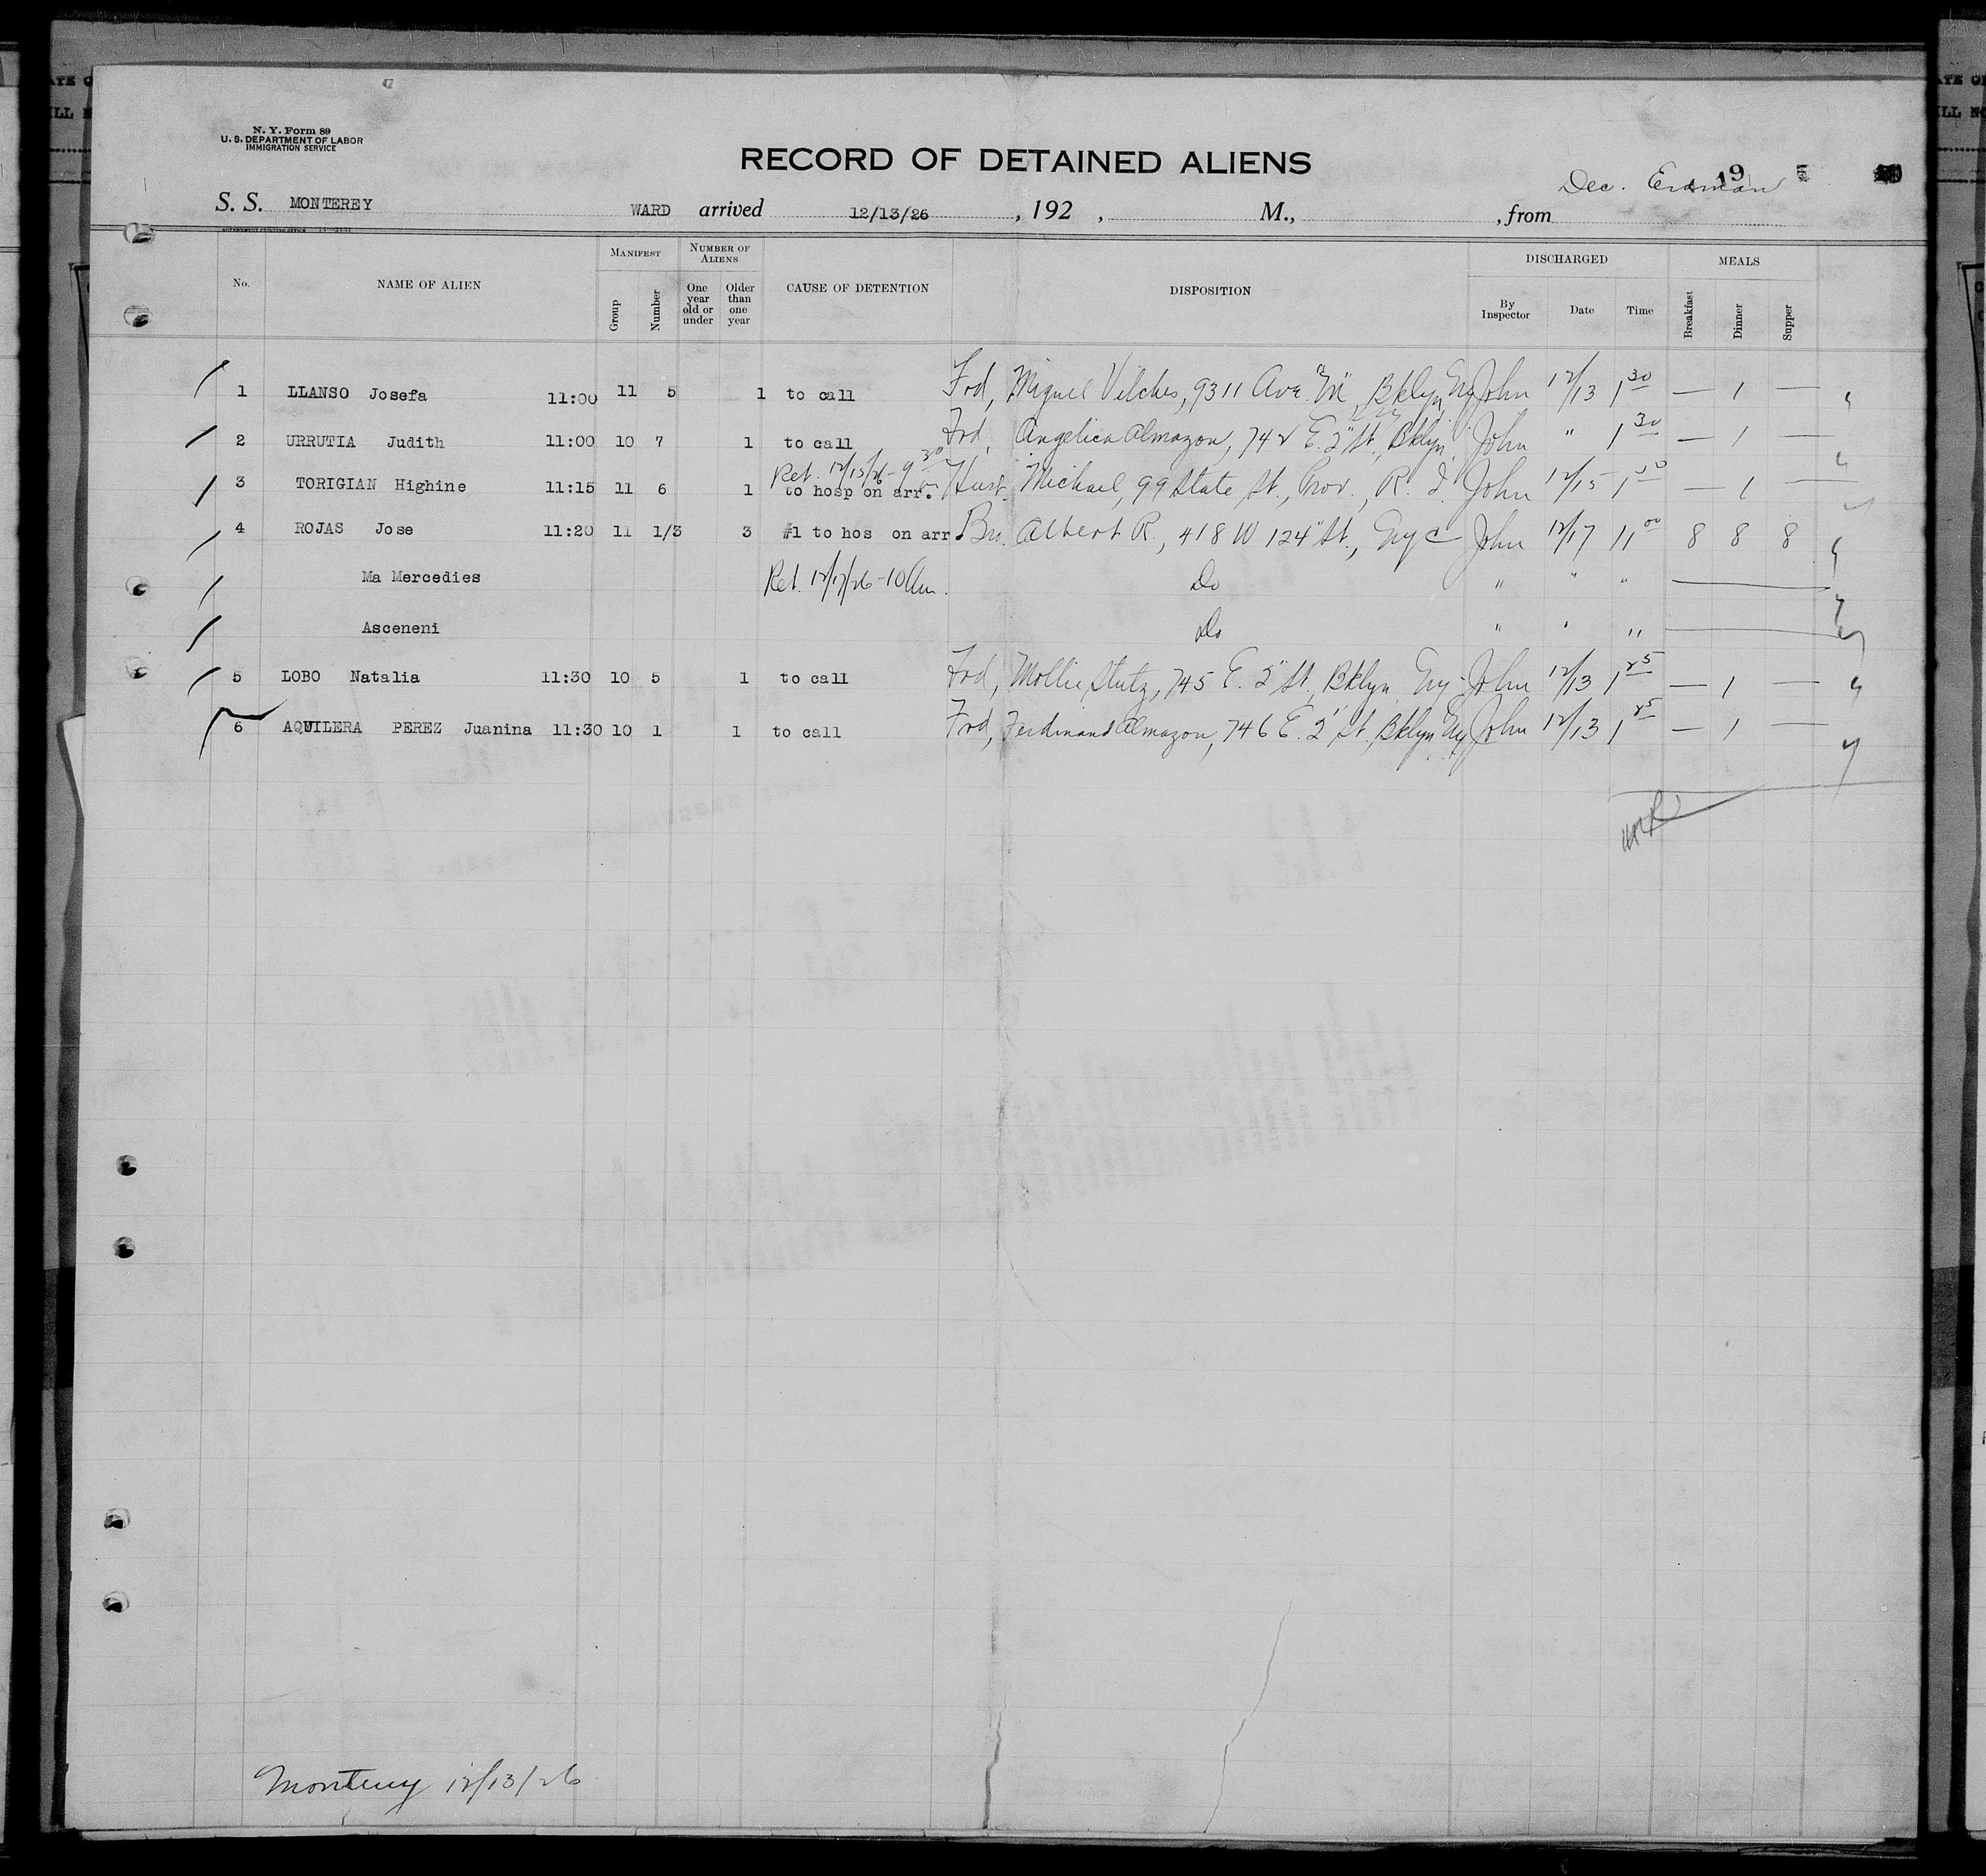 N. Y. Form 89
U. S. DEPARTMENT OF LABOR
IMMIGRATION SERVICE
RECORD OF DETAINED ALIENS
Dec. Erdman 19
S. S. MONTEREY WARD arrived 12/13/26, 192 , M., , from
No. NAME OF ALIEN MANIFEST Group Number NUMBER OF ALIENS One year old or under Older than one year CAUSE OF DETENTION DISPOSITION DISCHARGED By Inspector Date Time MEALS Breakfast Dinner Supper
1 LLANSO Josefa 11:00 11 5 1 to call Frd, Miguel Vilches, 9311 Ave. "M", Bklyn, Ny John 12/13 1 30 — 1 —
2 URRUTIA Judith 11:00 10 7 1 to call Frd, Angelica Almazon, 742 E. 2" St., Bklyn, John " 1 30 — 1 —
Ret. 12/15/26 - 9 30
3 TORIGIAN Highine 11:15 11 6 1 to hosp on arr. Hust. Michael, 99 State St., Prov., R. I. John 12/15 1 — 1 —
4 ROJAS Jose 11:20 11 1/3 3 #1 to hos on arr Bro. Albert R., 418 W 124" St., Nyc John 12/17 11 00 8 8 8
Ma Mercedies Ret. 12/17/26 - 10 Am. Do " " "
Asceneni Do " " "
5 LOBO Natalia 11:30 10 5 1 to call Frd, Mollie Stutz, 745 E. 2" St., Bklyn Ny - John 12/13 1 25 — 1 —
6 AQUILERA PEREZ Juanina 11:30 10 1 1 to call Frd, Ferdinand Almazon, 746 E. 2" St., Bklyn Ny John 12/13 1 25 — 1 —
Monterey 12/13/26